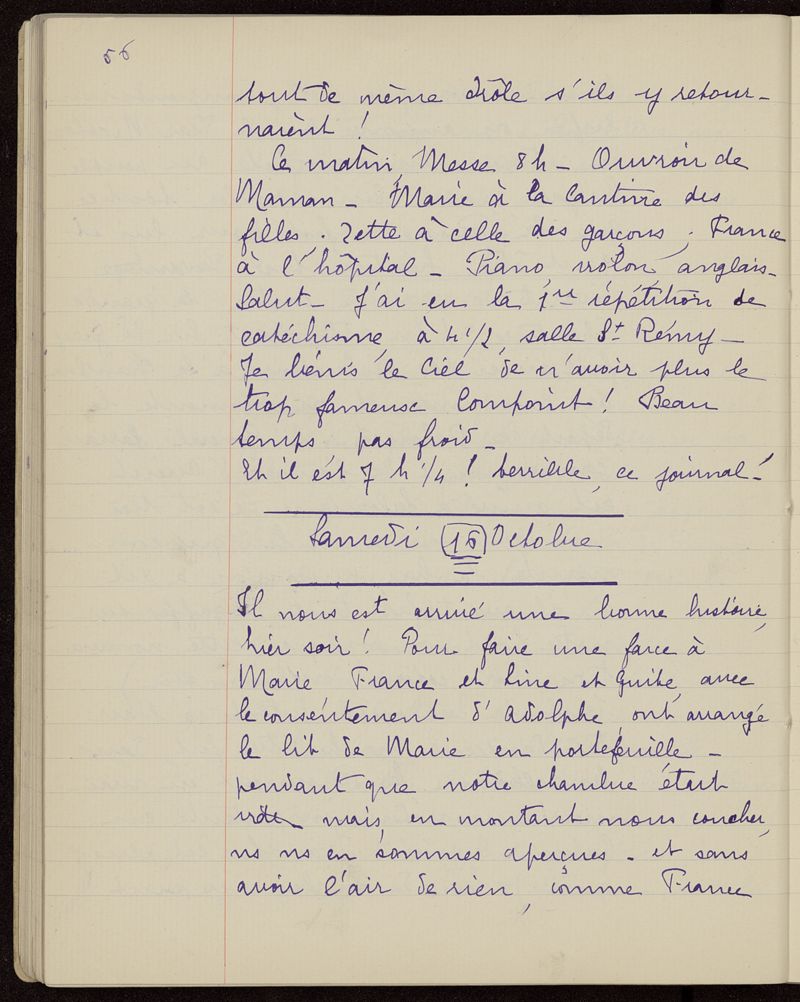 56
tout de même drôle s'ils y retour-
naient !
Ce matin, Messe 8h - Ouvroir de
Maman - Marie à la Cantine des
filles. Zette à celle des garçons, France
à l'hôpital - Piano, violon, anglais -
Salut - J'ai eu la 1re répétition de
catéchisme, à 4 1/2, salle St Rémy -
Je bénis le Ciel de n'avoir plus le
trop fameux Compoint ! Beau
temps pas froid -
Et il est 7 h 1/4 ! terrible, ce journal !
Samedi 16 Octobre
Il nous est arrivé une bonne histoire,
hier soir ! Pour faire une farce à
Marie France et Line et Guite, avec
le consentement d'Adolphe, ont arrangé
le lit de Marie en portefeuille -
pendant que notre chambre était
vide - mais, en montant nous coucher,
ns ns en sommes aperçues - et sans
avoir l'air de rien, comme France